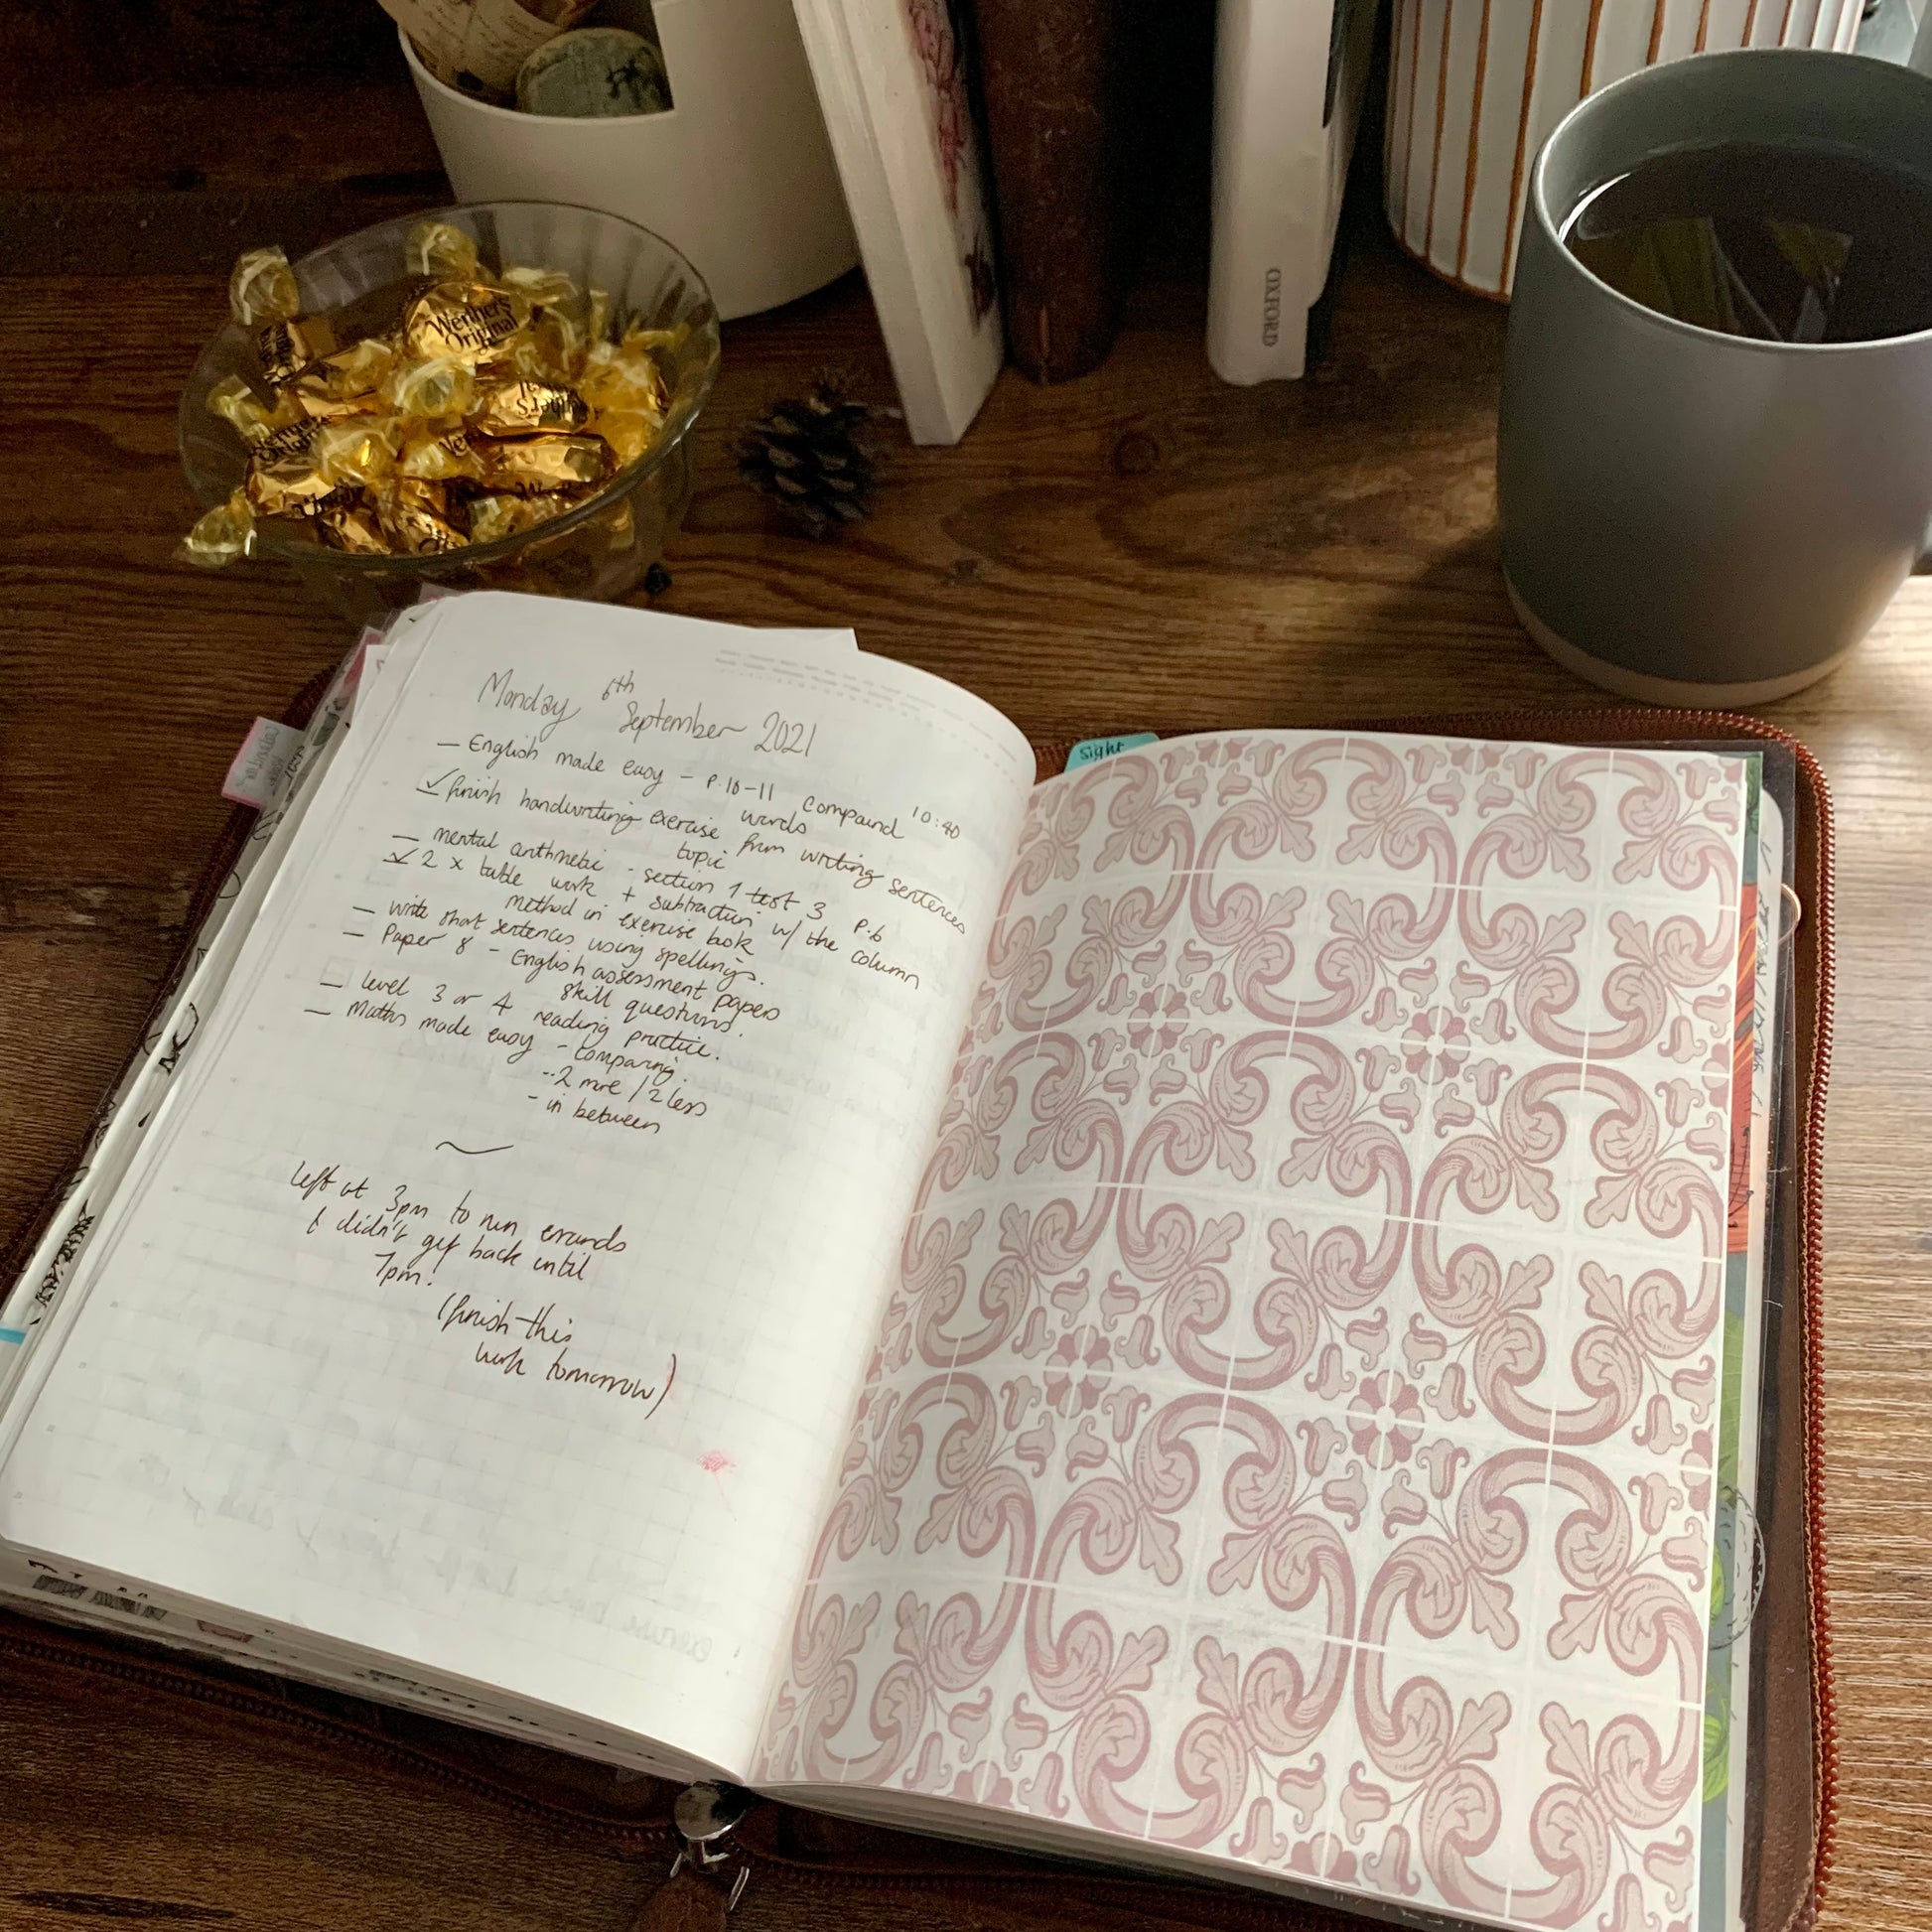 Werther's
Original
OXFORD
Sight
Monday 6th September 2021
– English made easy – P.10-11 compound 10:40
words
✓ finish handwriting exercise from writing sentences
topic
– mental arithmetic - section 1 test 3 P.6
✓ 2 x table work + subtraction w/ the column
method in exercise book
– write short sentences using spellings.
– Paper 8 – English assessment papers
skill questions.
– Level 3 or 4 reading practice.
– Maths made easy - comparing.
- 2 more / 2 less
- in between
~
Left at 3pm to run errands
& didn't get back until
7pm!
(finish this
work tomorrow)